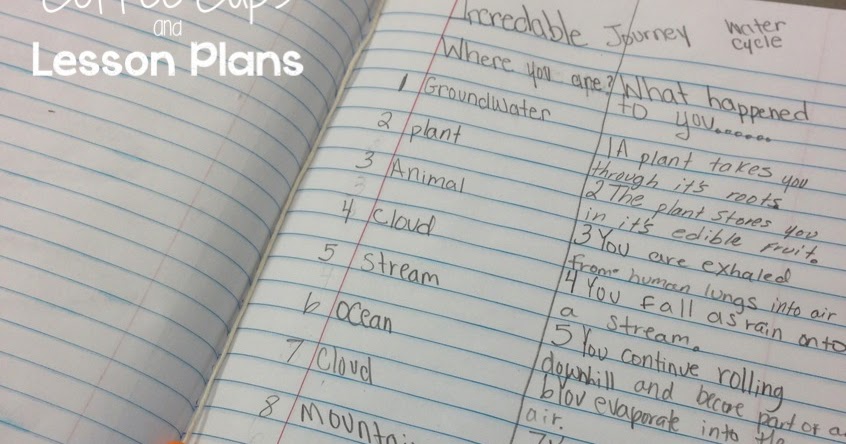 and
Lesson Plans
Incredable Journey water
cycle
Where you are?
1 Groundwater
2 plant
3 Animal
4 Cloud
5 Stream
6 Ocean
7 Cloud
8 Mountai
What happened
to you......
1 A plant takes you
through it's roots
2 The plant stores you
in it's edible fruit.
3 You are exhaled
frome human lungs into air
4 You fall as rain onto
a stream.
5 You continue rolling
downhill and become part of a
6 You evaporate into the
air.